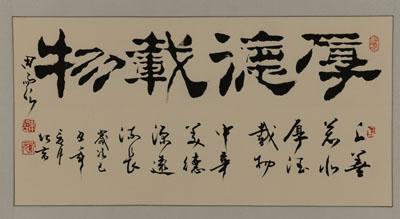 厚德載物
上善
若水
厚德
載物
中華
美德
源遠
流長
歲次己
丑年
月
北京